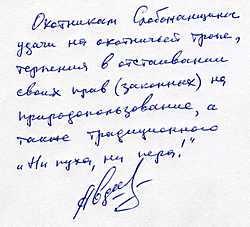 Охотникам Слобожанщины
удачи на охотничьей тропе,
терпения в отстаивании
своих прав (законных) на
природопользование, а
также традиционного
„Ни пуха, ни пера!"